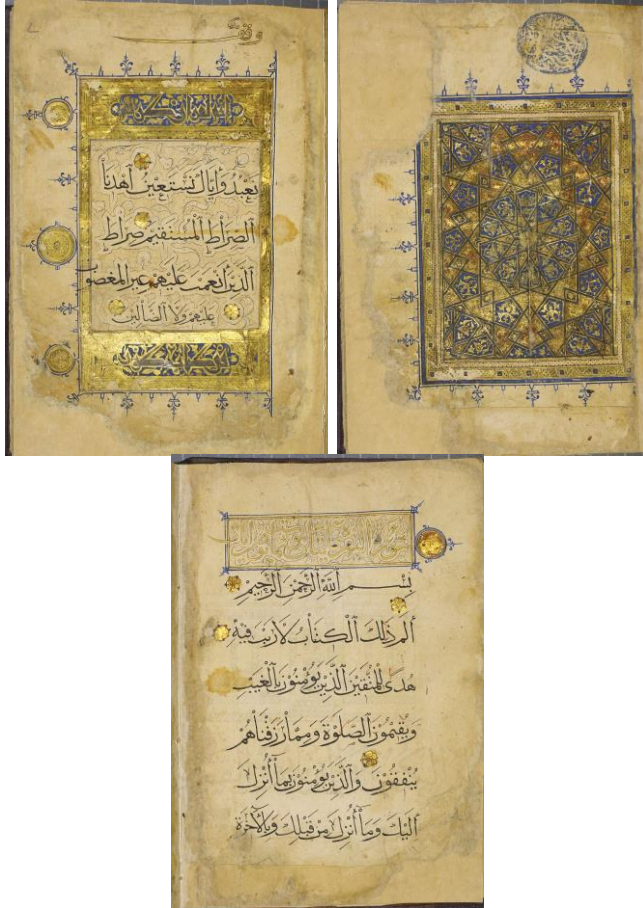 وقف
نَعْبُدُ وَاِيَّاكَ نَسْتَعِينُ اَهْدِنَا
اَلصِّرَاطَ اَلْمُسْتَقِيمَ صِرَاطَ
اَلَّذِينَ اَنْعَمْتَ عَلَيْهِمْ غَيْرِ الْمَغْضُوبِ
عَلَيْهِمْ وَلَا الضَّالِّينَ
سورة البقرة
بِسْمِ اللَّهِ الرَّحْمَنِ الرَّحِيمِ
الم ذَلِكَ الْكِتَابُ لَا رَيْبَ فِيهِ
هُدًى لِلْمُتَّقِينَ الَّذِينَ يُؤْمِنُونَ بِالْغَيْبِ
وَيُقِيمُونَ الصَّلَوةَ وَمِمَّا رَزَقْنَاهُمْ
يُنْفِقُونَ وَالَّذِينَ يُؤْمِنُونَ بِمَا أُنْزِلَ
اِلَيْكَ وَمَا أُنْزِلَ مِنْ قَبْلِكَ وَبِالْآخِرَةِ